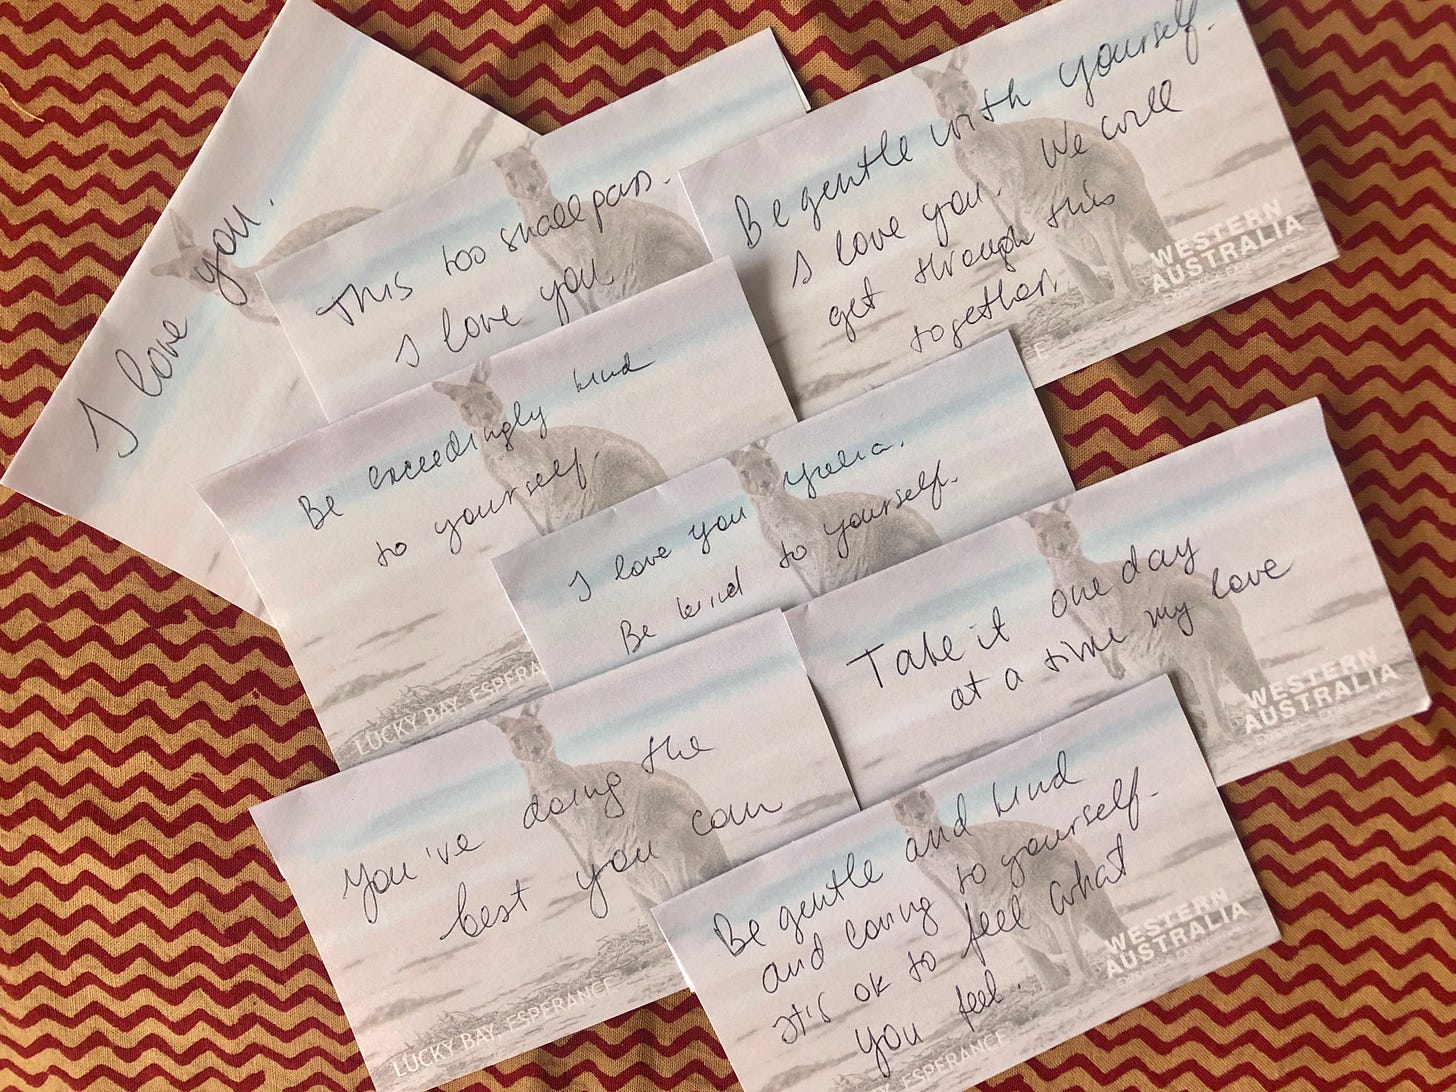 I love you.
This too shall pass.
I love you.
Be gentle with yourself.
I love you. We will
get through this
together.
WESTERN
AUSTRALIA
E
Be exceedingly kind
to yourself.
LUCKY BAY, ESPERA
I love you Yulia.
Be kind to yourself.
Take it one day
at a time my love
WESTERN
AUSTRALIA
You've doing the
best you can
LUCKY BAY, ESPERANCE
Be gentle and kind
and caring to yourself.
It's ok to feel what
you feel.
WESTERN
AUSTRALIA
BAY, ESPERANCE